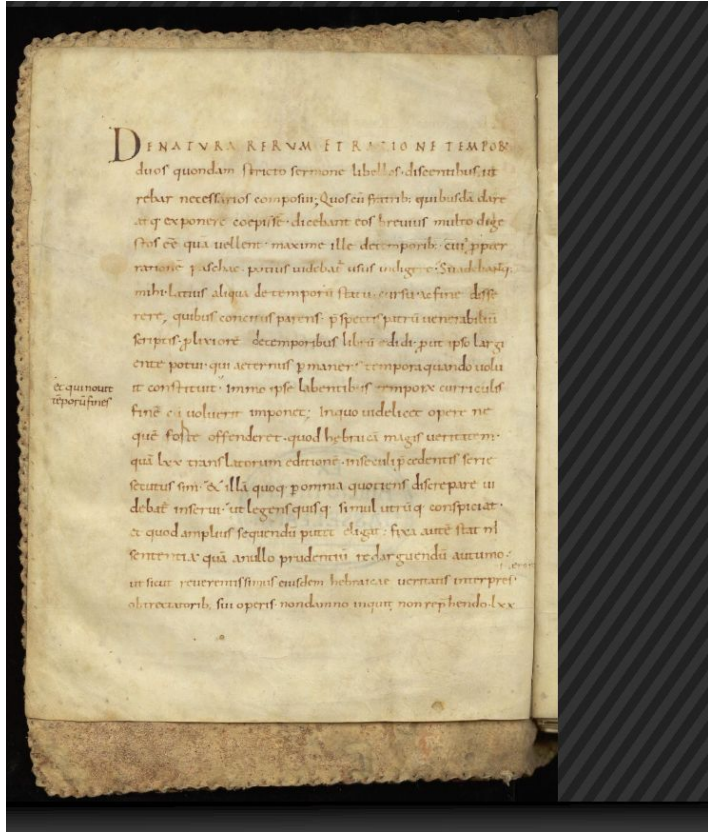 DE NATURA RERUM ET RATIONE TEMPOR
duos quondam stricto sermone libellos discentibus ut
rebar necessarios composui; Quos cū fratrib; quibusdā dare
atq exponere coepisse dicebant eos brevius multo dige
stos eē quā vellent maxime ille de temporib; cui ppter
rationē paschae potius videbat usus indigere Suadebantq;
mihi latius aliqua de temporū statu cursu ac fine disse
rere, quibus concitus parens pspectis patrū venerabiliū
scriptis plixiorē de temporibus librū edidi put ipse largi
ente potui qui aeternus pmanens tempora quando volu
et qui novit
tēporū fines
it constituit immo ipse labentibus temporū curriculis
finē cū voluerit imponet; In quo videlicet opere ne
quē forte offenderet quod hebraicā magis veritatem
quā lxx translatorum editionē in seculi pcedentis serie
secutus sim & illā quoq p omnia quotiens discrepare vi
debat inserui ut legens quisq simul utrūq conspiciat
et quod amplius sequendū putet eligat fixa autē stat
sententia quā a nullo prudentiū redarguendū autumo
ut sicut reverentissimus eiusdem hebraicae veritatis interpres
obtrectatorib; sui operis non damno inquit non rephendo lxx